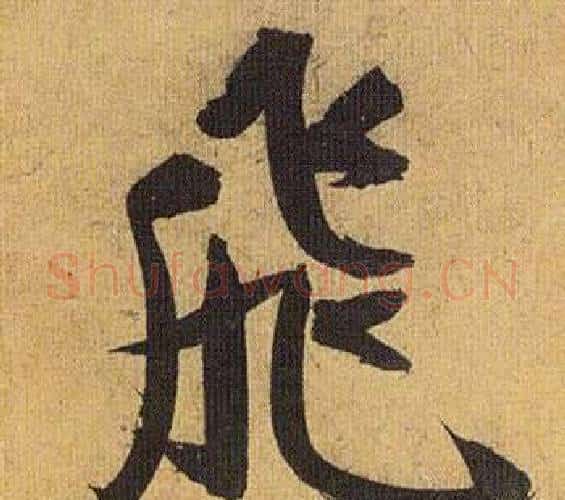 飛
Shufawang.CN